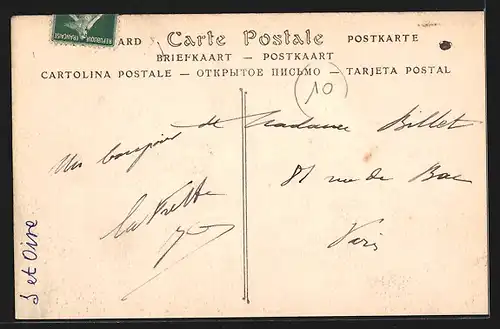 REPUBLIQUE FRANÇAISE
ARD Carte Postale POSTKARTE
BRIEFKAART – POSTKAART
CARTOLINA POSTALE – ОТКРЫТОЕ ПИСЬМО – TARJETA POSTAL
10
Un bonjour de
La Frette
Madame Billet
81 rue de Bac
Paris
S et Oise